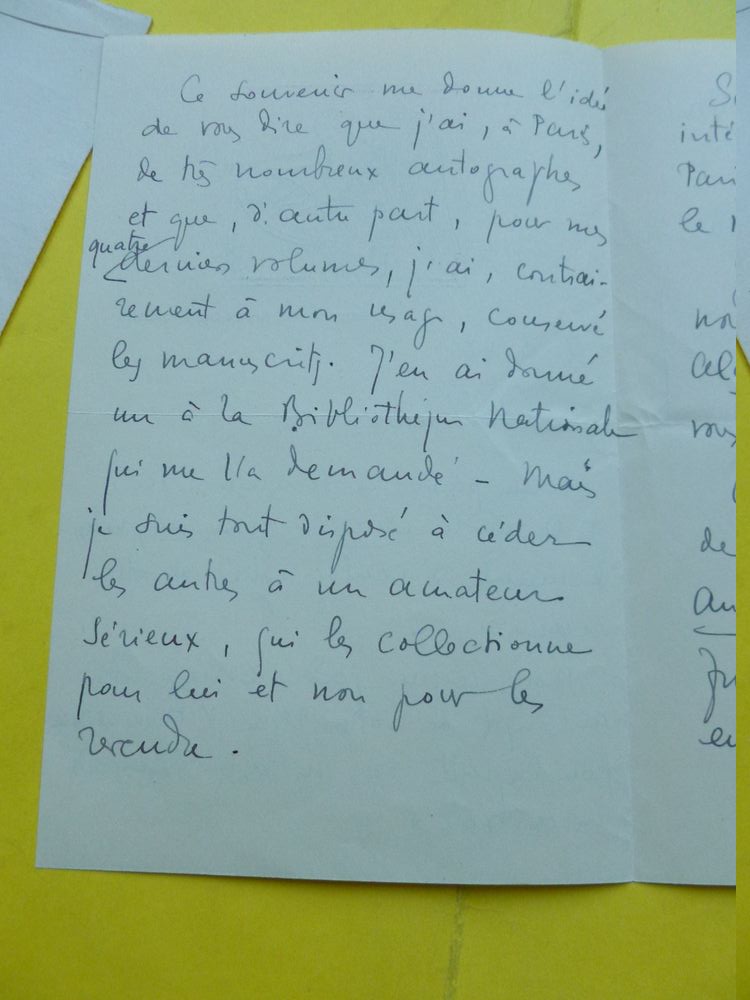 Ce souvenir me donne l'idée
de vous dire que j'ai, à Paris,
de très nombreux autographes
et que, d'autre part, pour mes
quatre
derniers volumes, j'ai, contrai-
rement à mon usage, conservé
les manuscrits. J'en ai donné
un à la Bibliothèque Nationale
qui me l'a demandé – Mais
je suis tout disposé à céder
les autres à un amateur
sérieux, qui les collectionne
pour lui et non pour les
revendre.
inté
Pari
le
vous
de
au
en